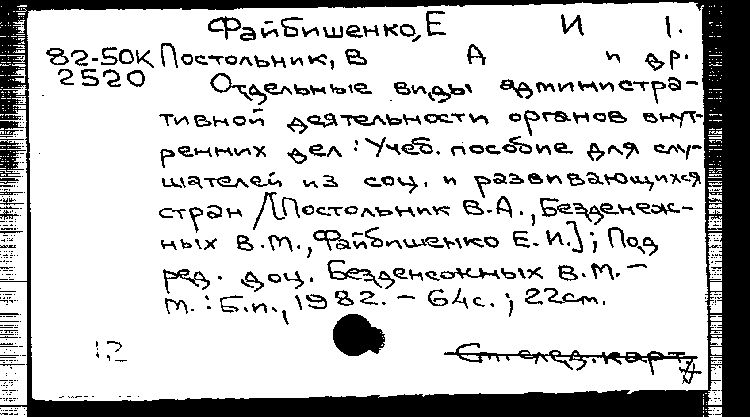 Файбишенко, Е И 1.
82-50К Постольник, В А и др.
2520 Отдельные виды администра-
тивной деятельности органов внут-
ренних дел : Учеб. пособие для слу-
шателей из соц. и развивающихся
стран / [Постольник В.А., Безденеж-
ных В.М., Файбишенко Е.И.] ; Под
ред. доц. Безденежных В.М. –
М. : Б.и., 1982. – 64с. ; 22см.
1,2 См. след. карт.